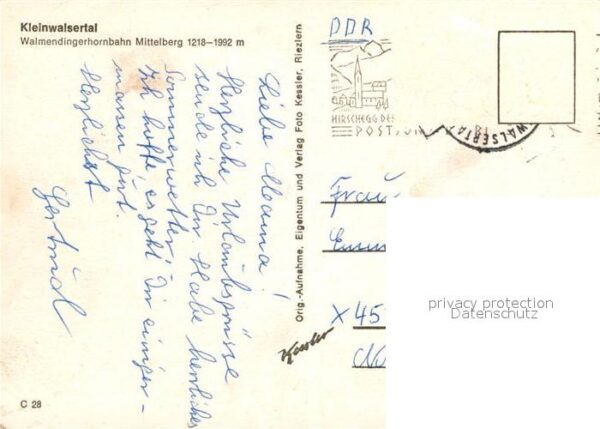 Kleinwalsertal
Walmendingerhornbahn Mittelberg 1218–1992 m
Liebe Mama!
Herzliche Urlaubsgrüsse
sende ich Dir. Habe herrliches
Sommerwetter.
Ich hoffe es geht Dir einiger-
massen gut.
Herzlichst
Gertrud
C 28
Orig.-Aufnahme, Eigentum und Verlag Foto Kessler, Riezlern
Kessler
DDR
HIRSCHEGG
POST
WALSERTA
Frau
X 45
privacy protection
Datenschutz